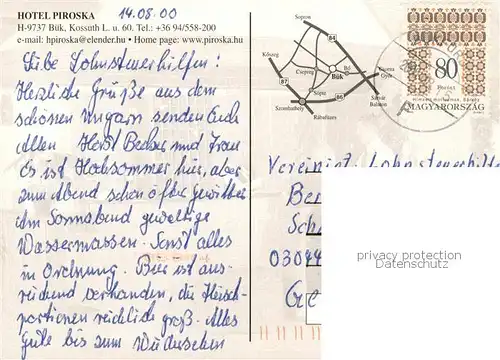 HOTEL PIROSKA
14.08.00
H-9737 Bük, Kossuth L. u. 60. Tel.: +36 94/558-200
e-mail: hpiroska@elender.hu • Home page: www.piroska.hu
Liebe Lohnsteuerhilfen!
Herzliche Grüße aus dem
schönen Ungarn senden Euch
Allen Horst Becker und Frau
Es ist Hochsommer hier, aber
zum Abend schon öfter Gewitter
Am Sonnabend gewaltige
Wassermassen. Sonst alles
in Ordnung. Bier ist aus-
reichend vorhanden, die Fleisch-
portionen reichlich groß. Alles
Gute bis zum Wiedersehen
Sopron
84
Kőszeg
Csepreg
Bő
Bük
87
Csorna
Győr
Sópte
86
Szombathely
Sárvár
Balaton
Rábafüzes
80
MAGYARORSZÁG
Vereinigt. Lohnsteuerhilfe
Be
Sch
03044
privacy protection
Datenschutz